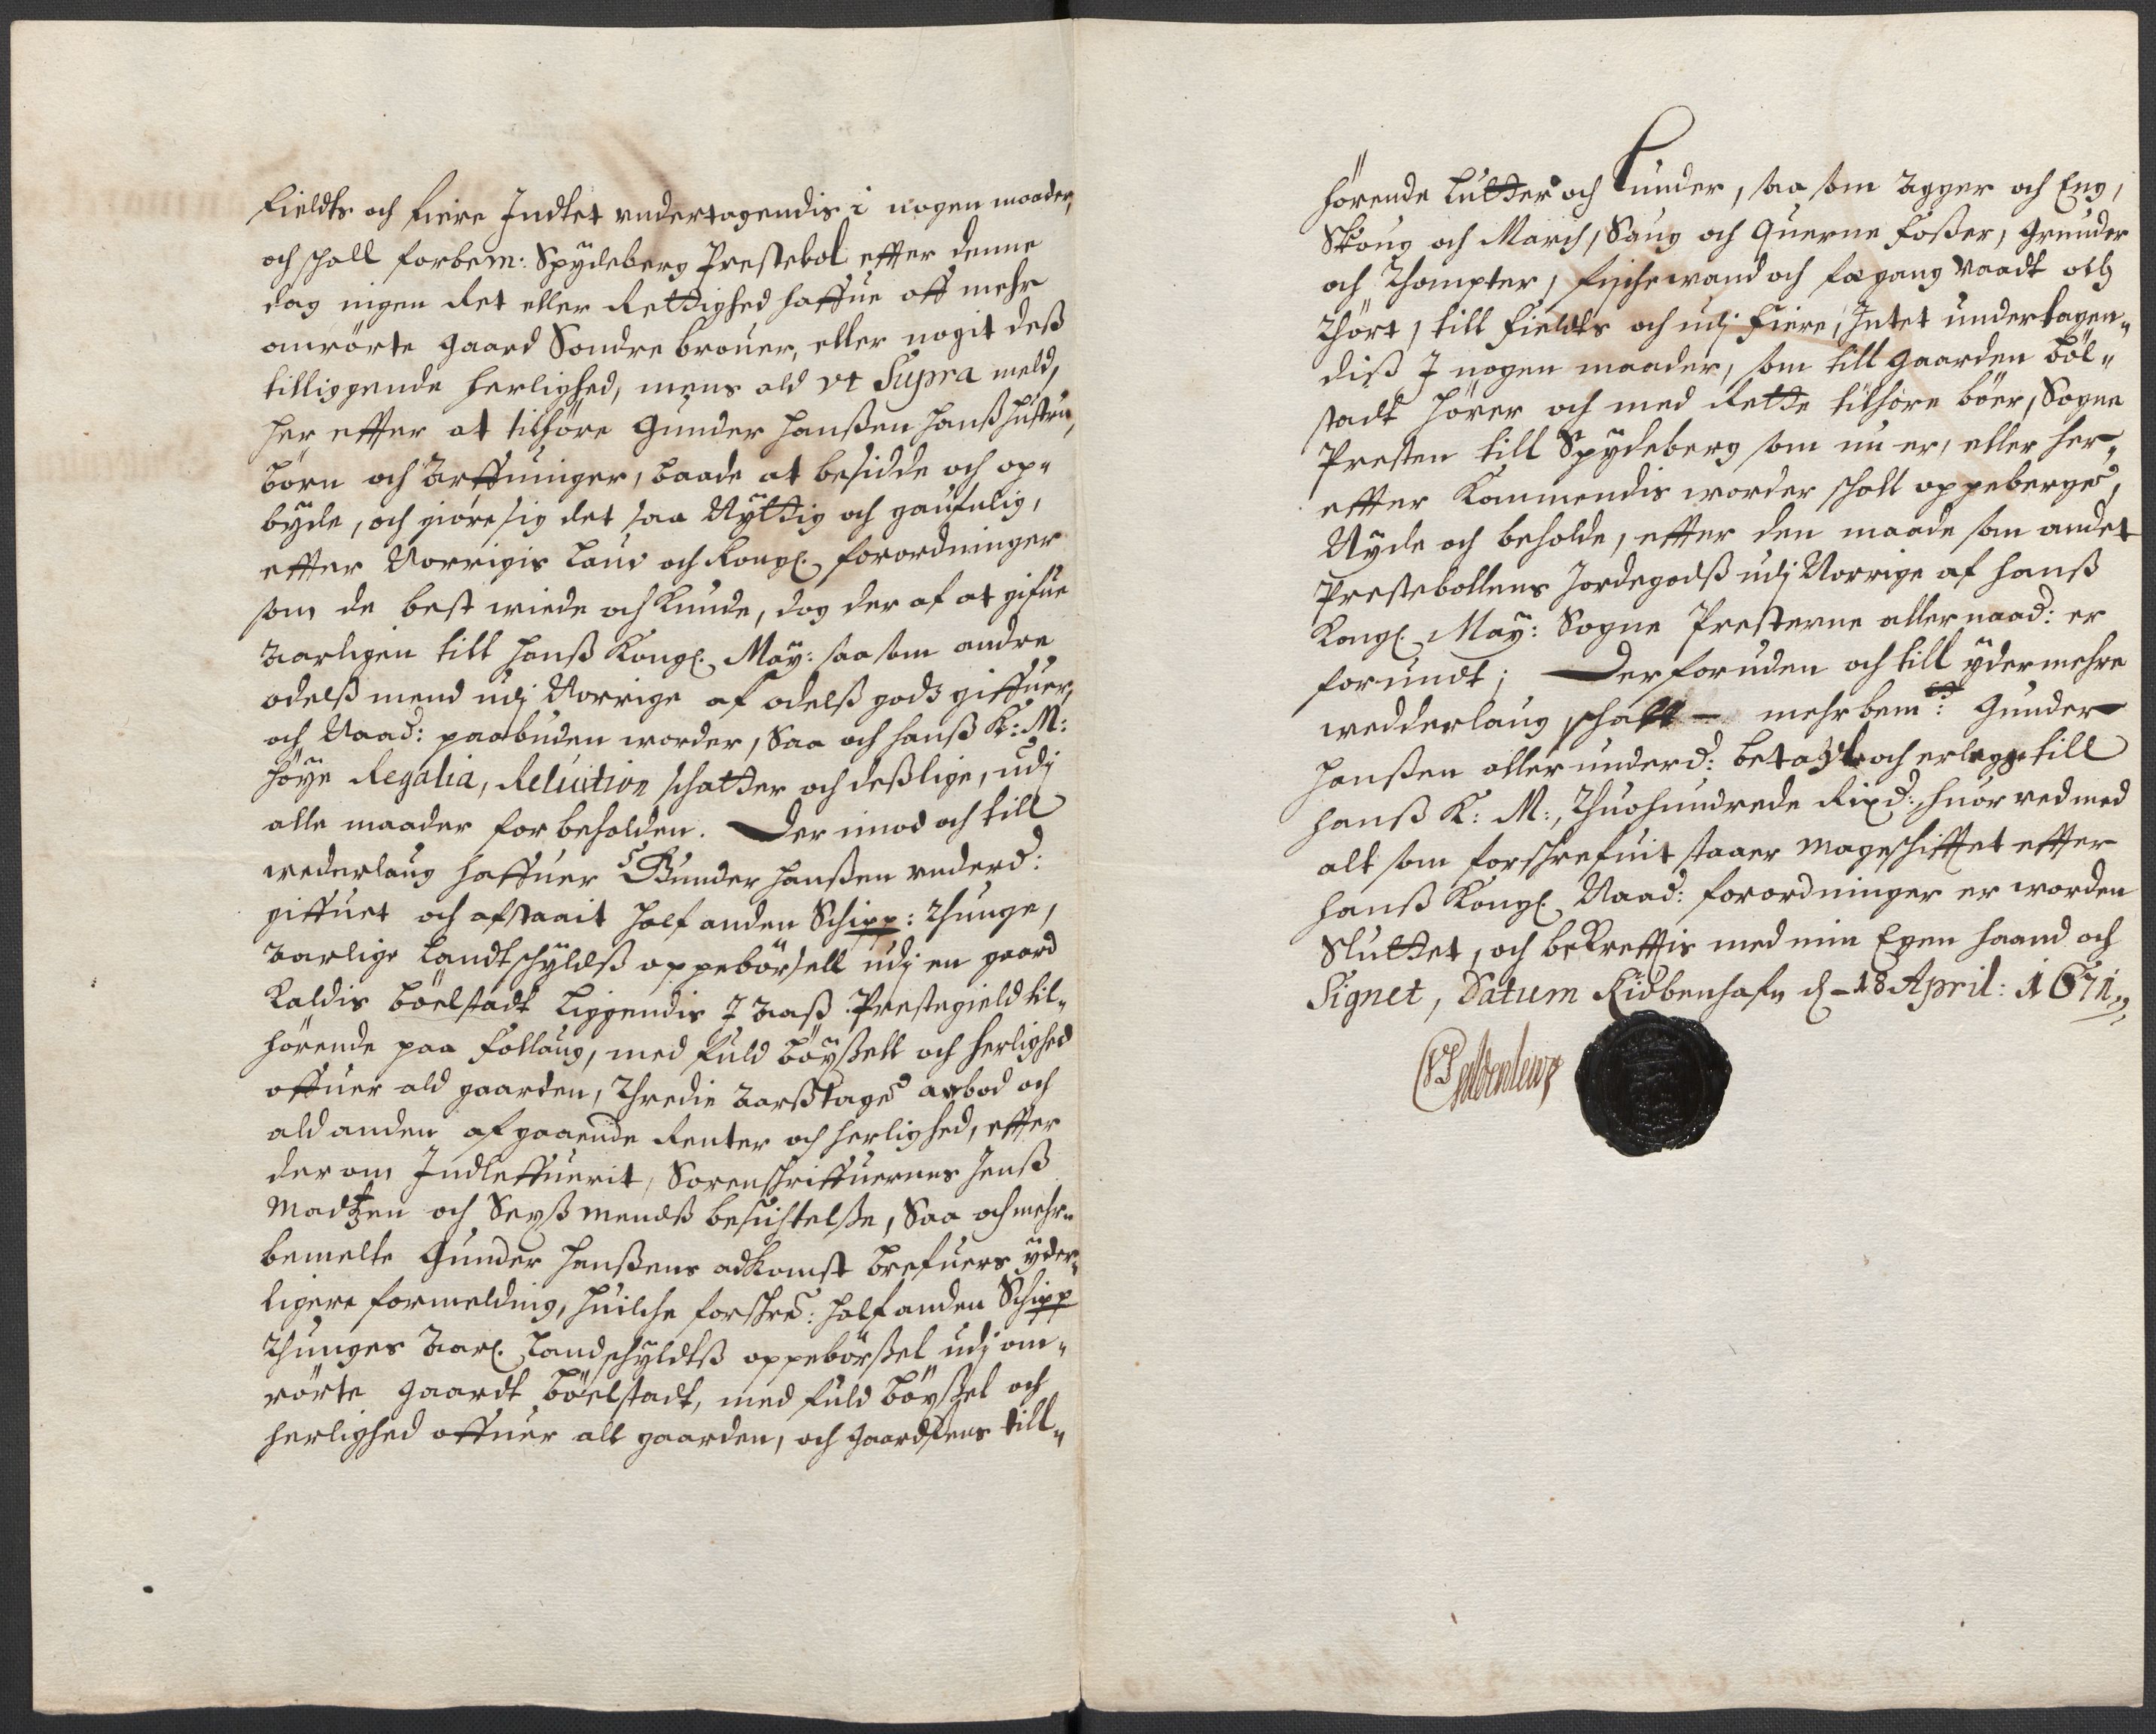 Fieldts och fiere Indtet undertagendis i nogen maader,
och schall forbem: Spydeberg Prestebol effter denne
dag ingen Ret eller Rettighed haffue aff mehr
anrörte gaard Sondre brouer, eller nogit deß
tilliggende herlighed, mens ald vt Supra meld,
her effter at tilhöre Gunder Hanßen Hanß hustru,
börn och Arffuinger, baade at besidde och op-
byde, och giöre sig det saa Nyttig och gaufnlig,
effter Norrigis Lauv och Kongl. forordninger
som de best wiede och kunde, dog der af at gifue
Aarligen till Hanß Kongl. May: saa som andre
odelß mend udj Norrige af odelß gods giffuer,
och Naad: paabuden worder, Saa och hanß K: M:
höye Regalia, Reluition schatter och deßlige, udj
alle maader forbeholden. Der imod och till
wederlaug haffuer Gunder Hanßen underd:
giffuet och afstaait half anden Schipp: Thunge,
Aarlige Landtschyldß oppebörsell udj en gaard
Kaldis Böelstadt Liggendis I Aaß Prestegield til-
hörende paa Follaug, med fuld böyßell och herlighed
offuer ald gaarden, Thredie Aarßtage arbod och
ald anden afgaaende Renter och herlighed, effter
der om Indleffuerit, Sorenschriffuernes Jenß
Madtzen och Sexß mendß besichtelße, Saa och mehr-
bemelte Gunder Hanßens adkomst brefuers yder-
ligere formelding, huilche forskre: half anden Schipp
Thunges Aarl. Landschyldtß oppebörßel udj om-
rörte gaardt Böelstadt, med fuld böyßel och
herlighed offuer alt gaarden, och gaardtens till-
hörende Lutter och Lunder, saa som Agger och Eng,
Skoug och March, Saug och Querne foßer, grunder
och Thompter, fischewand och fægang Vaadt och
Thört, till fieldts och udj fiere, Intet undertagen-
diß I nogen maader, som till Gaarden Böl-
stadt hörer och med Rette tilhöre böer, Sogne
Presten till Spydeberg som nu er, eller her-
effter Kommendis worder schall oppeberge,
Nyde och beholde, effter den maade som andet
Prestebollens Jordegodß udj Norrige af hanß
Kongl. May: Sogne Presterne allernaad: er
forundt; Der foruden och till ydermehre
wedderlaug schall - mehrbemte: Gunder
Hanßen allerunderd: betahle och erlegge till
hanß K: M:, Thuohundrede Rixd:, huor ved med
alt som forschrefuit staaer mageschifftet effter
hanß Kongl. Naad: forordninger er worden
Sluttet, och bekrefftis med min Egen haand och
Signet, Datum Kiöbenhafn d - 18 April: 1671
VF Guldenlewe